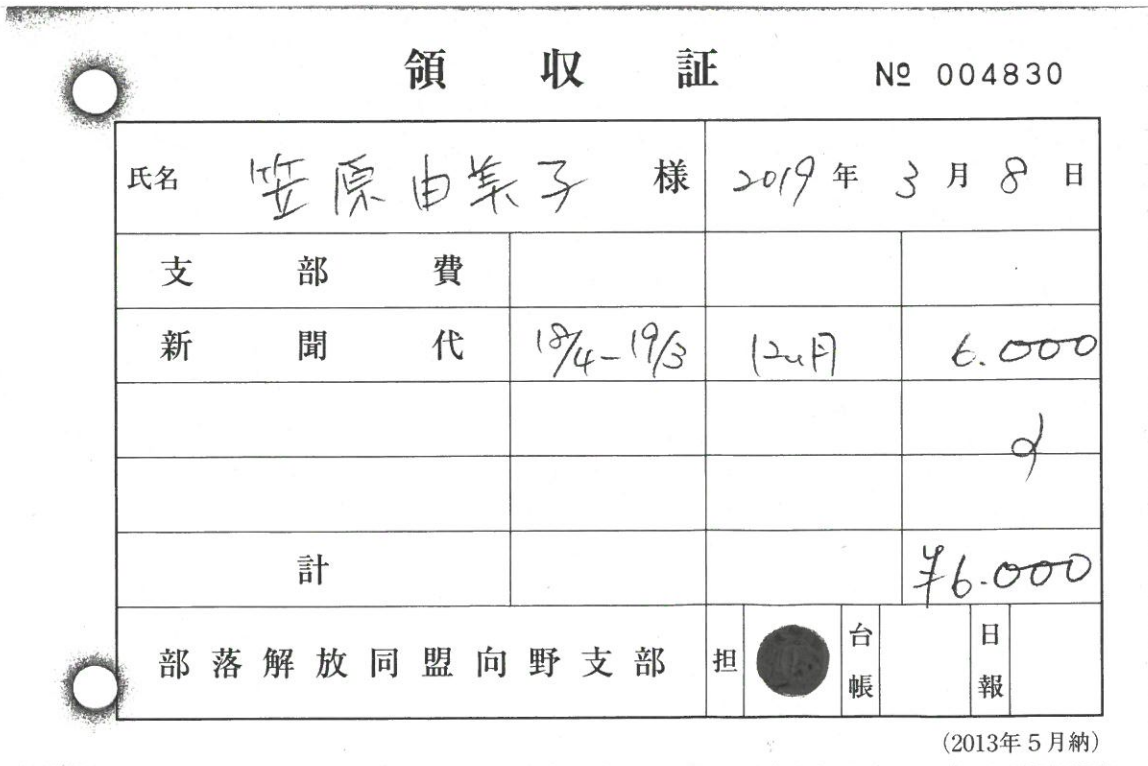 領収証 № 004830
氏名 笠原由美子 様 2019年3月8日
支部費
新聞代 18/4-19/3 12ヶ月 6.000
計 ¥6.000
部落解放同盟向野支部 担 台帳 日報
(2013年5月納)